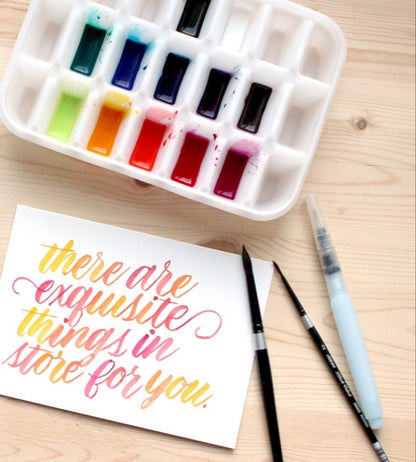 there are
exquisite
things in
store for you.